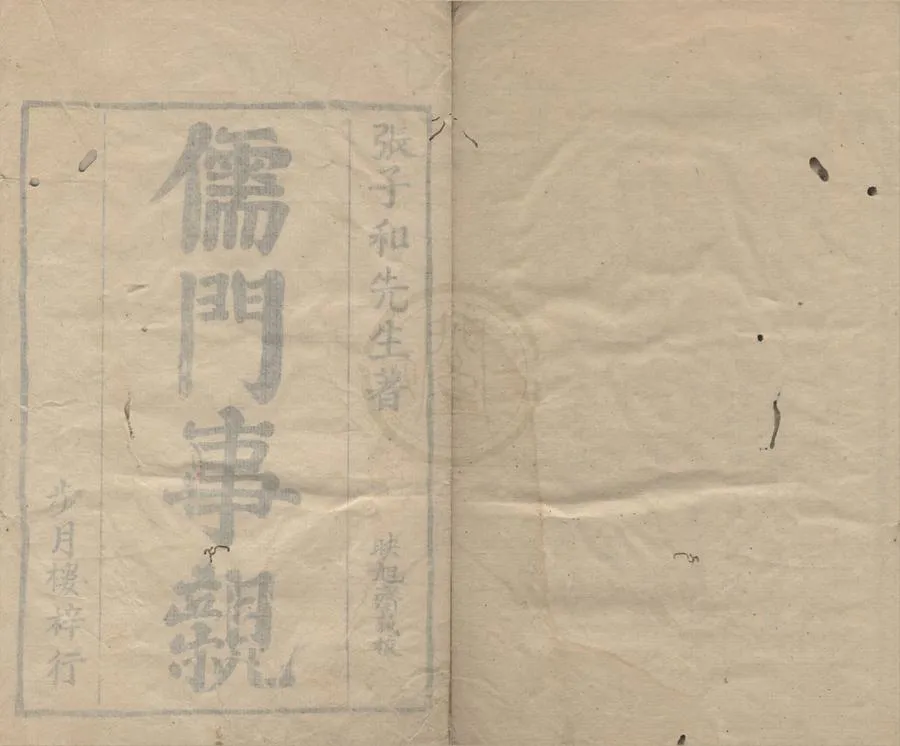 張子和先生著
映旭齋藏板
儒門事親
步月樓梓行